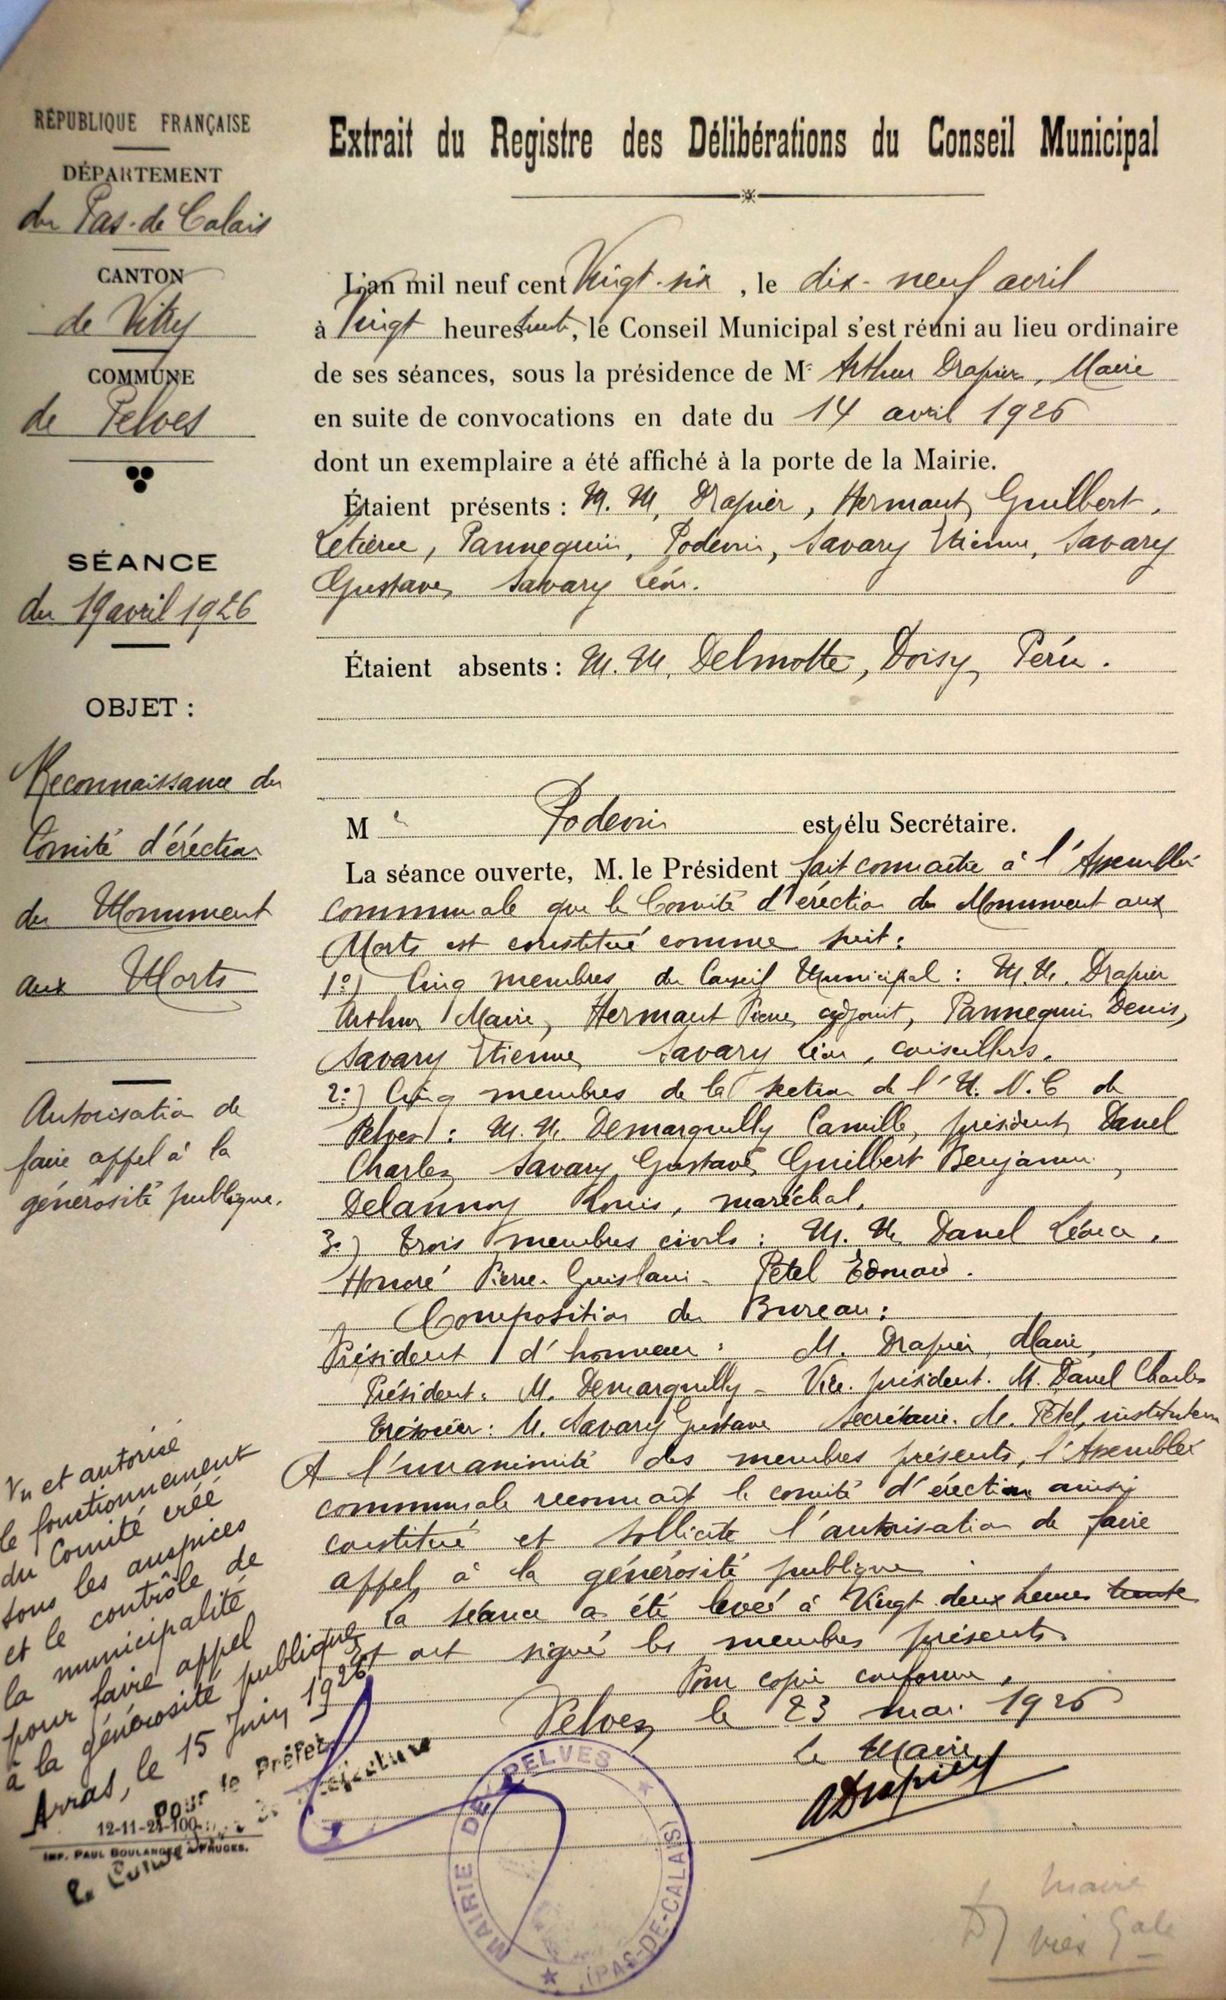 RÉPUBLIQUE FRANÇAISE
DÉPARTEMENT
du Pas-de-Calais
CANTON
de Vitry
COMMUNE
de Pelves
SÉANCE
du 19 avril 1926
OBJET :
Reconnaissance du
Comité d'érection
du Monument
aux Morts
Autorisation de
faire appel à la
générosité publique.
Vu et autorisé
le fonctionnement
du Comité créé
sous les auspices
et le contrôle de
la municipalité
pour faire appel
à la générosité publique
Arras, le 15 Juin 1926
Pour le Préfet
Préfecture
12-11-24-100
IMP. PAUL BOULANGER A FRUGES.
Extrait du Registre des Délibérations du Conseil Municipal
L'an mil neuf cent Vingt-six, le dix-neuf avril
à Vingt heures, le Conseil Municipal s'est réuni au lieu ordinaire
de ses séances, sous la présidence de Mr Arthur Drapier, Maire
en suite de convocations en date du 14 avril 1926
dont un exemplaire a été affiché à la porte de la Mairie.
Étaient présents : M. M. Drapier, Hermant, Guilbert,
Pannequin, Podevin, Savary Etienne, Savary
Gustave, Savary Léon.
Étaient absents : M. M. Delmotte, Doisy, Péru.
M Podevin est élu Secrétaire.
La séance ouverte, M. le Président fait connaître à l'Assemblée
communale que le Comité d'érection du Monument aux
Morts est constitué comme suit :
1°) Cinq membres du Conseil Municipal : M. M. Drapier
Arthur Maire, Hermant Pierre adjoint, Pannequin Denis,
Savary Etienne, Savary Léon, conseillers.
2°) Cinq membres de la section de l'U. N. C de
Pelves : M. M. Demarquilly Camille, président, Danel
Charles, Savary Gustave, Guilbert Benjamin,
Delannoy Louis, maréchal.
3°) Trois membres civils : M. M. Danel Léonce,
Honoré Pierre-Guislain - Petel Edouard.
Composition du Bureau :
Président d'honneur : M. Drapier, Maire,
Président : M. Demarquilly - Vice-président. M. Danel Charles
Trésorier : M. Savary Gustave Secrétaire. M. Petel, instituteur
A l'unanimité des membres présents, l'Assemblée
communale reconnaît le comité d'érection ainsi
constitué et sollicite l'autorisation de faire
appel à la générosité publique
La séance a été levée à Vingt deux heures trente
Et ont signé les membres présents.
Pour copie conforme,
Pelves, le 23 mai 1926
Le Maire
ADrapier
MAIRIE DE PELVES
(PAS-DE-CALAIS)
Maire